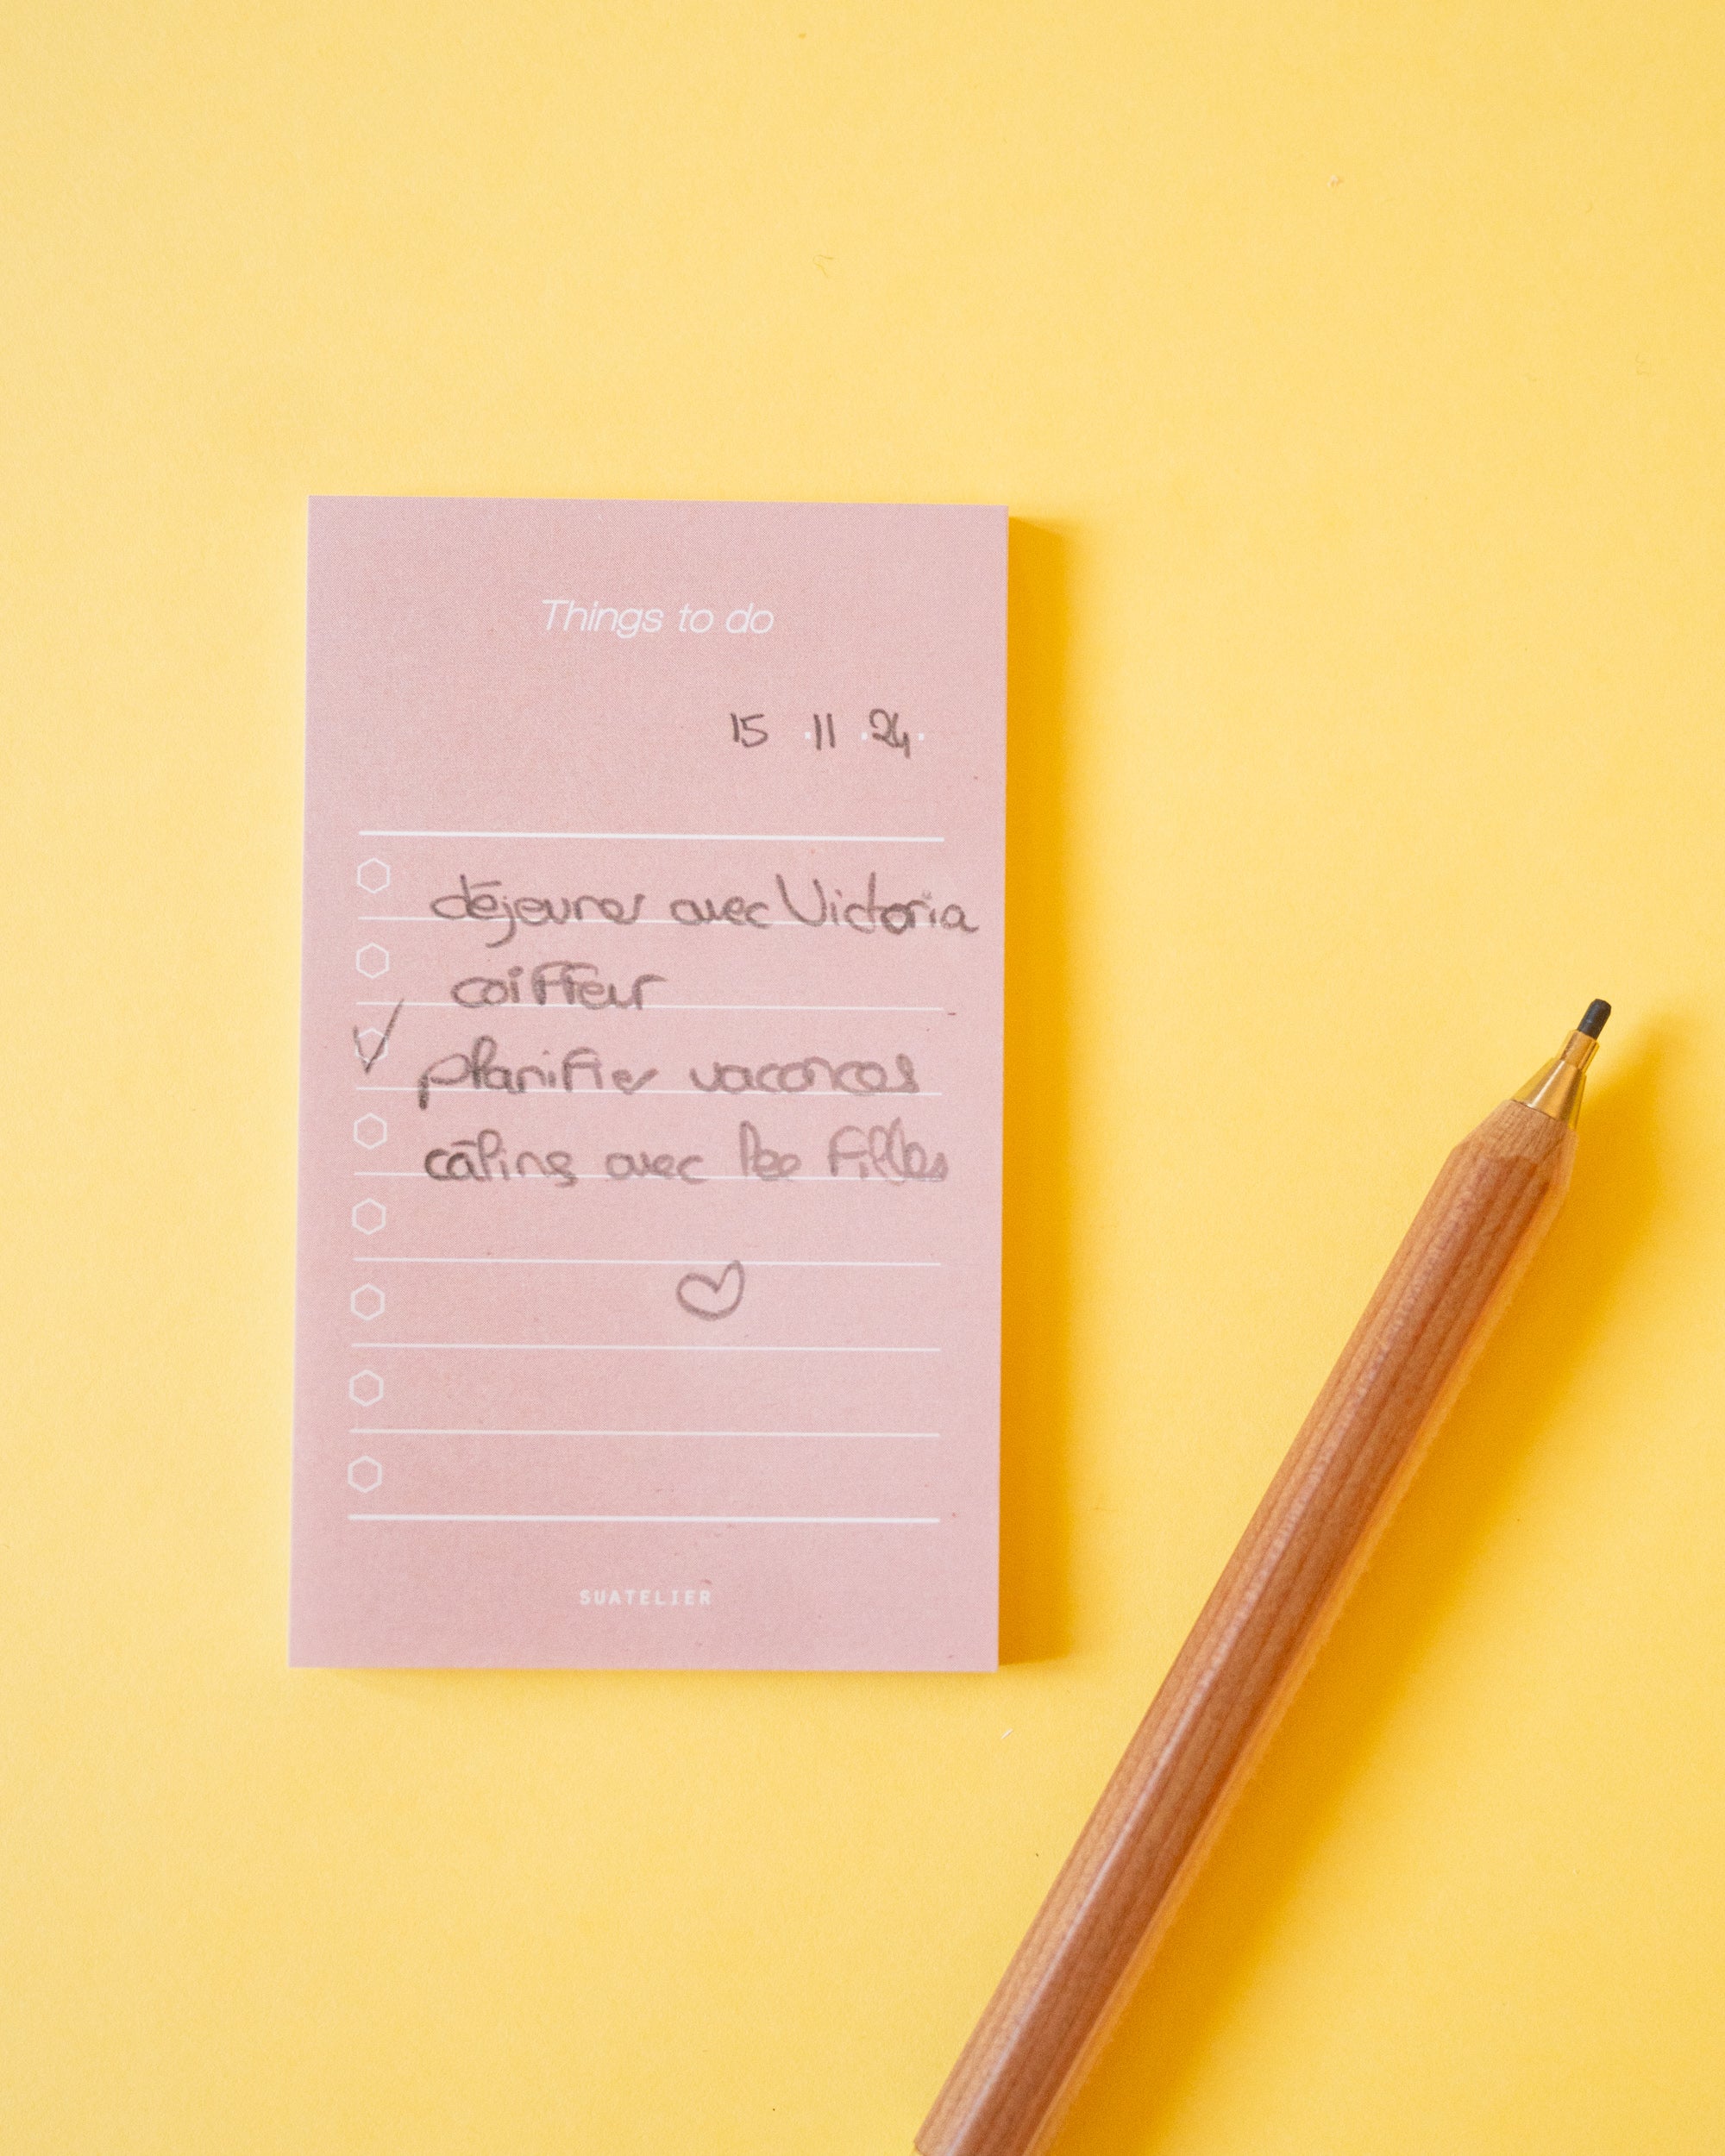 Things to do
15 . 11 . 24 .
déjeuner avec Victoria
coiffeur
planifier vacances
câlins avec les filles
SUATELIER